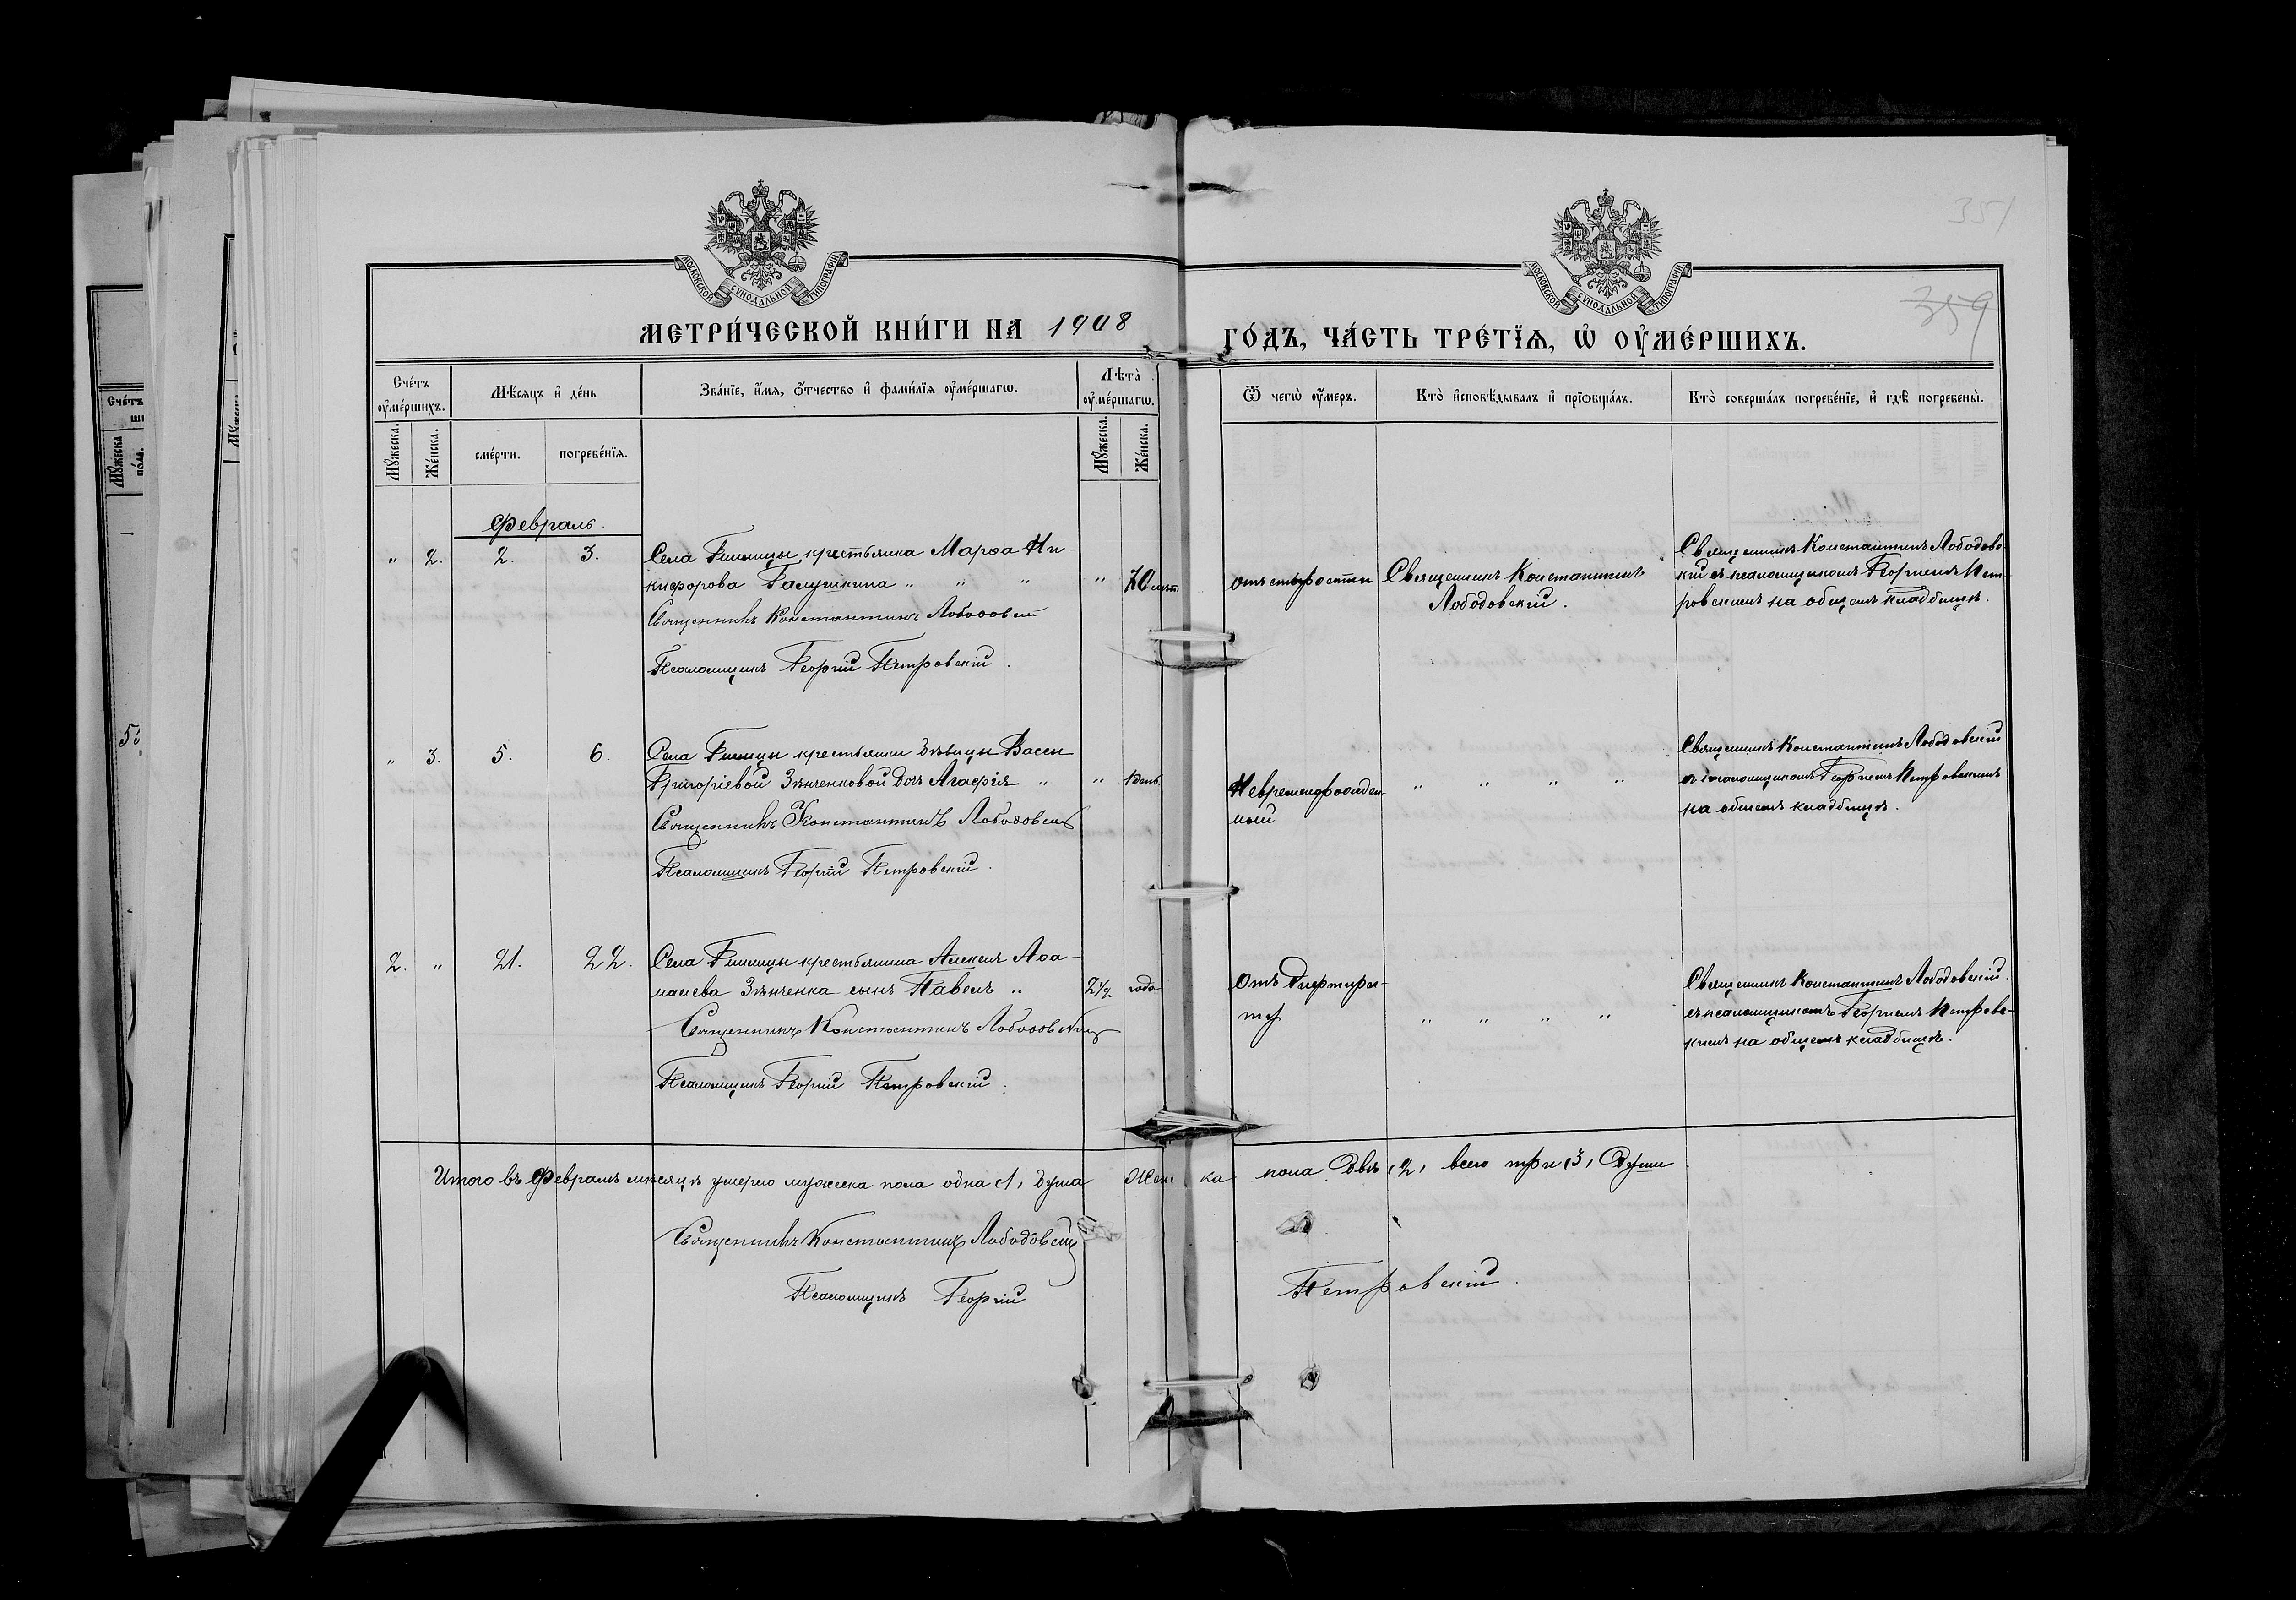 МОСКОВСКОЙ СѴНОДАЛЬНОЙ ТИПОГРАФІИ
МОСКОВСКОЙ СѴНОДАЛЬНОЙ ТИПОГРАФІИ
351
359
МЕТРИ́ЧЕСКОЙ КНИ́ГИ НА 1908
ГО́ДЪ, ЧА́СТЬ ТРЕ́ТЇѦ, Ѡ҆ ОУ҆МЕ́РШИХЪ.
Сче́тъ оу҆ме́ршихъ.
Мѣ́сяцъ и҆ де́нь
Зва́нїе, и҆́мя, ѻ҆́тчество и҆ фамі́лїя оу҆ме́ршагѡ.
Лѣта̀ оу҆ме́ршагѡ.
Ѿ чегѡ̀ оу҆́меръ.
Кто̀ и҆сповѣ́дывалъ и҆ прїѡбща́лъ.
Кто̀ соверша́лъ погребе́нїе, и҆ гдѣ̀ погребены̀.
Мꙋ́жеска.
Же́нска.
сме́рти.
погребе́нїя.
Мꙋ́жеска.
Же́нска.
Февраль.
" 2. 2. 3. Села крестьянка Марѳа Ни-
кифорова Галушкина " " " " 70 лѣтъ
Священникъ Константинъ Лободовскій
Псаломщикъ Георгій Петровскій.
отъ старости
Священникъ Константинъ
Лободовскій.
Священникъ Константинъ Лободовс-
кій съ псаломщикомъ Георгіемъ Пет-
ровскимъ на общемъ кладбищѣ.
" 3. 5. 6. Села крестьянки дѣвицы Вассы
Григоріевой Зѣнченковой дочь Агафія " " 1 день.
Священникъ Константинъ Лободовскій
Псаломщикъ Георгій Петровскій.
Невременорожден-
ный
" " " "
Священникъ Константинъ Лободовскій
съ псаломщикомъ Георгіемъ Петровскимъ
на общемъ кладбищѣ.
2. " 21. 22. Села крестьянина Алексѣя Аѳа-
насіева Зѣнченка сынъ Павелъ " 2½ года
Священникъ Константинъ Лободовскій
Псаломщикъ Георгій Петровскій.
Отъ Дифтери-
та
" " " "
Священникъ Константинъ Лободовскій.
съ псаломщикомъ Георгіемъ Петровс-
кимъ на общемъ кладбищѣ.
Итого въ Февралѣ мѣсяцѣ умерло мужеска пола одна (1) душа Женска пола двѣ (2) всего три (3) Души.
Священникъ Константинъ Лободовскій
Псаломщикъ Георгій Петровскій.